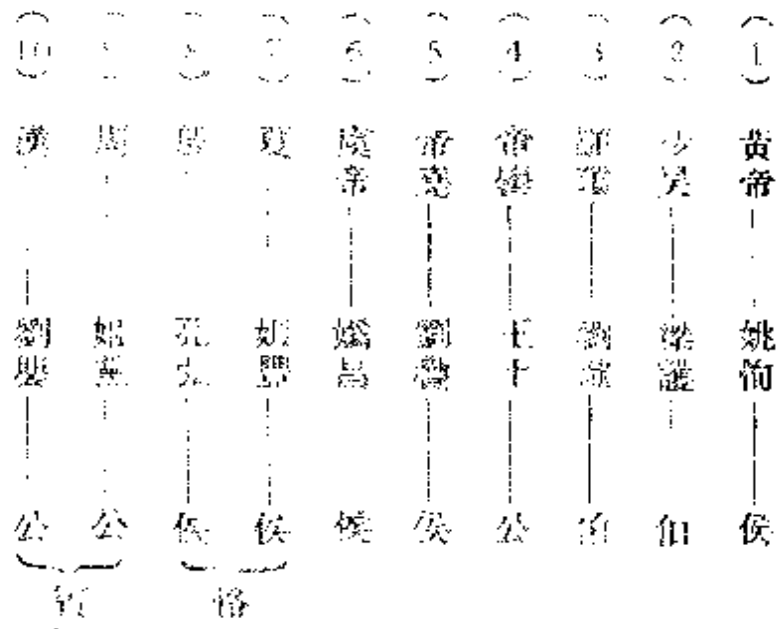 (1) 黄帝 姚恂 侯
(2) 少昊 梁護 伯
(3) 顓頊 劉 伯
(4) 帝嚳 王千 公
(5) 帝堯 劉疊 侯
(6) 虞帝 媯昌 侯
(7) 夏 姒 侯
(8) 殷 孔弘 侯
(9) 周 姬黨 公
(10) 漢 劉嬰 公
恪
賓